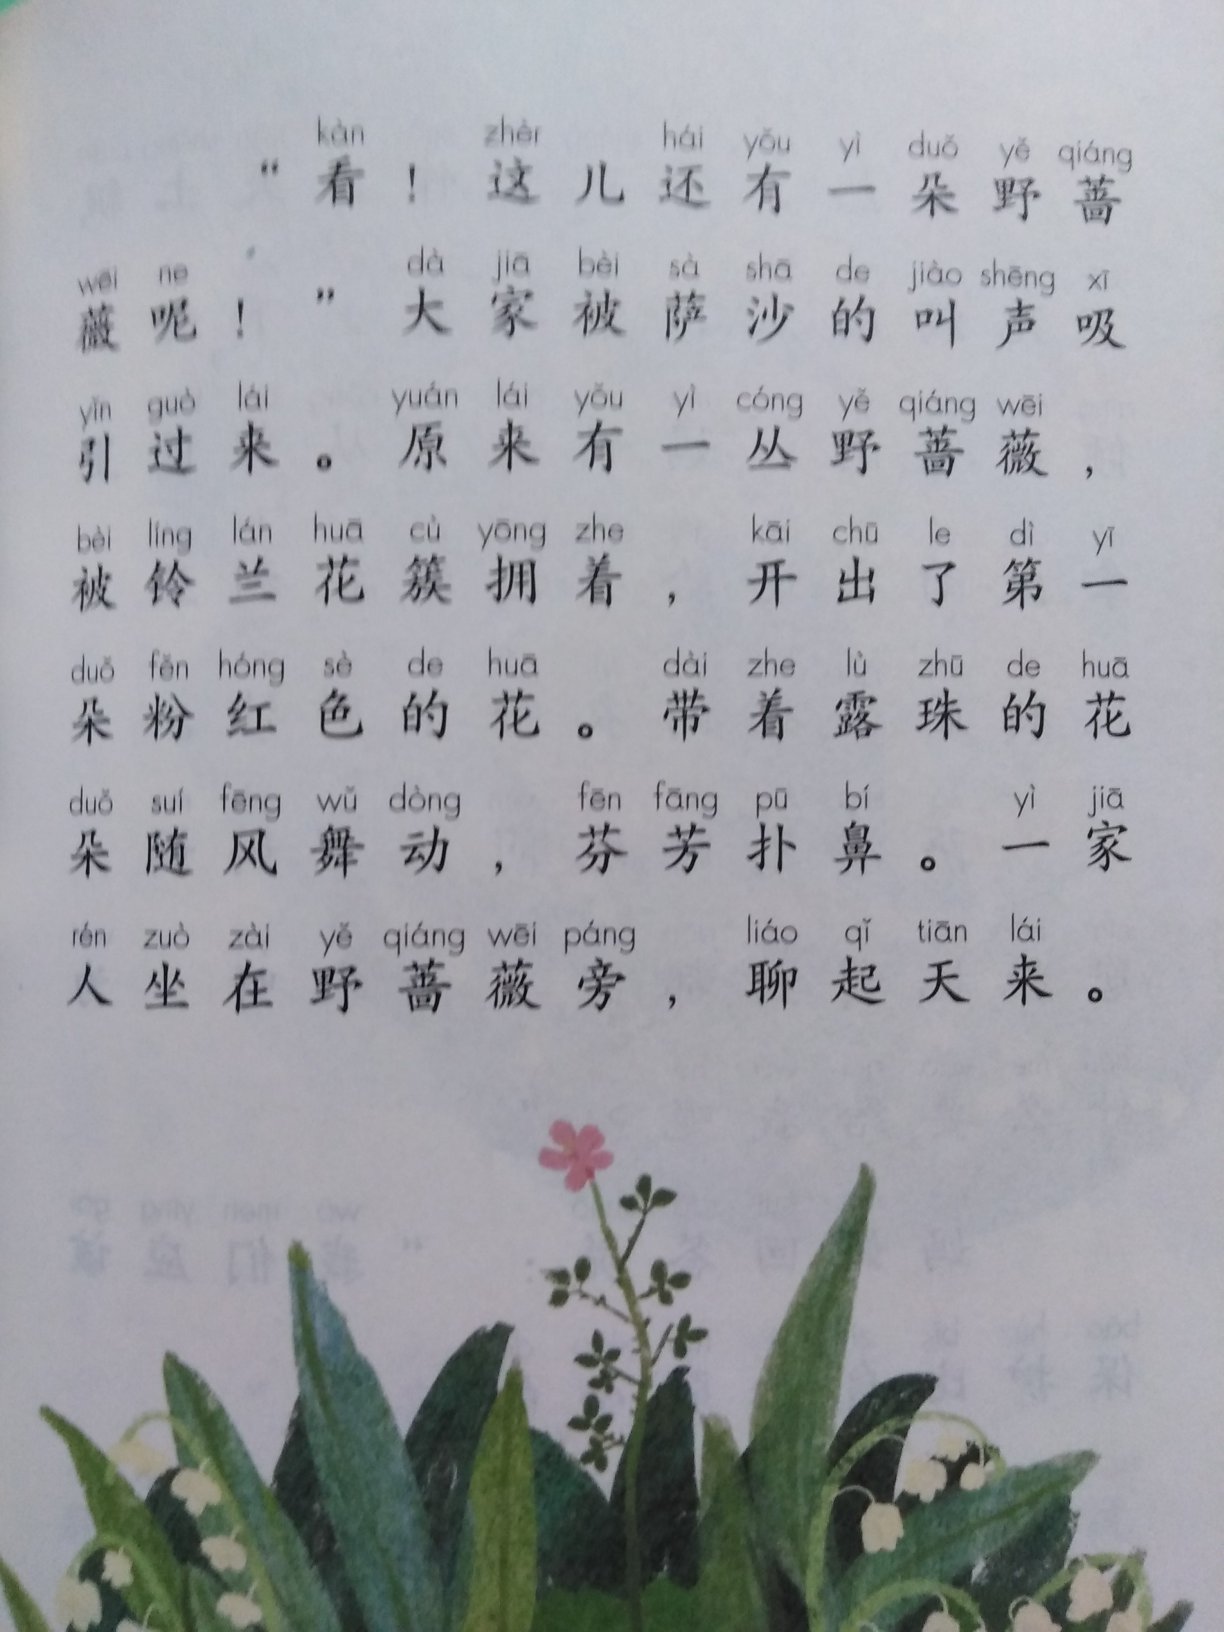 kàn zhèr hái yǒu yì duǒ yě qiáng
“看！这儿还有一朵野蔷
wēi ne dà jiā bèi sà shā de jiào shēng xī
薇呢！”大家被萨沙的叫声吸
yǐn guò lái yuán lái yǒu yì cóng yě qiáng wēi
引过来。原来有一丛野蔷薇，
bèi líng lán huā cù yōng zhe kāi chū le dì yī
被铃兰花簇拥着，开出了第一
duǒ fěn hóng sè de huā dài zhe lù zhū de huā
朵粉红色的花。带着露珠的花
duǒ suí fēng wǔ dòng fēn fāng pū bí yì jiā
朵随风舞动，芬芳扑鼻。一家
rén zuò zài yě qiáng wēi páng liáo qǐ tiān lái
人坐在野蔷薇旁，聊起天来。